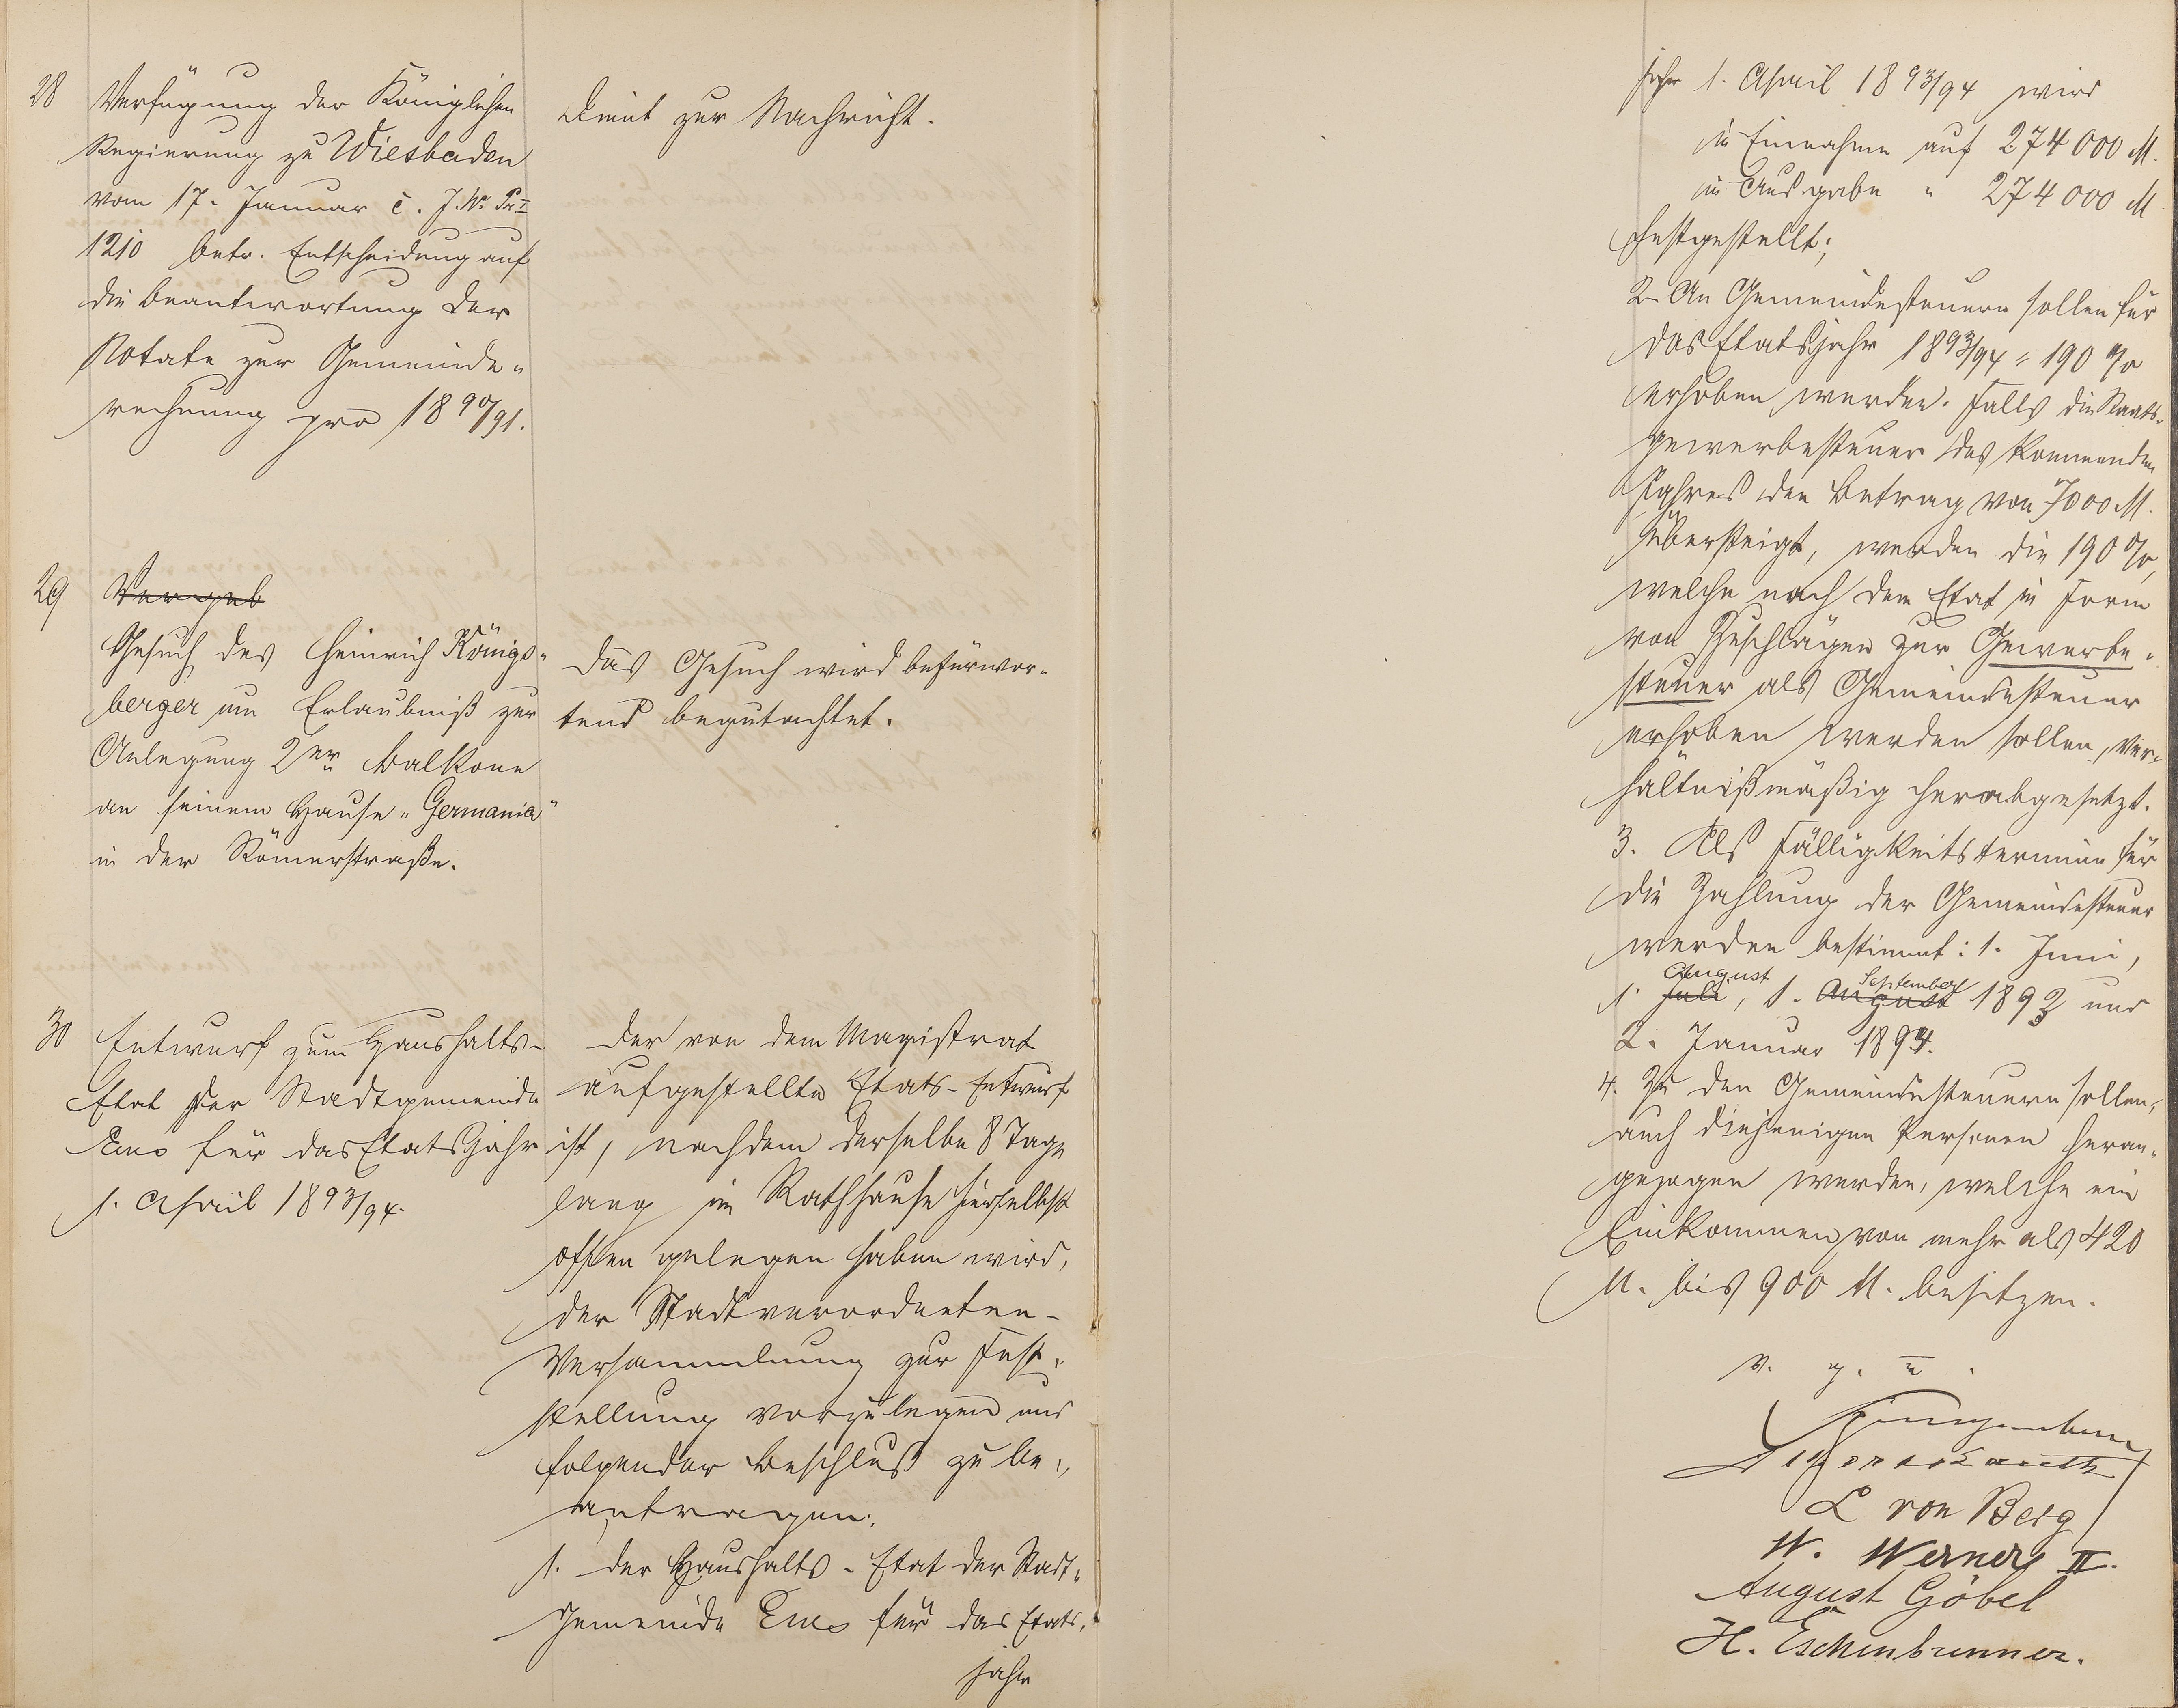 28
Verfügung der Königlichen
Regierung zu Wiesbaden
vom 17. Januar c. J. No Pr I
1210 betr. Entscheidung auf
die Beantwortung der
Notate zur Gemeinde-
rechnung pro 1890/91.
Dient zur Nachricht.
29
Vergeb
Gesuch des Heinrich Königs-
berger um Erlaubniß zur
Anlegung 2er Balkone
an seinem Hause "Germania"
in der Römerstraße.
Das Gesuch wird befürwor-
tend begutachtet.
30
Entwurf zum Haushalts-
Etat der Stadtgemeinde
Ems für das Etatsjahr
1. April 1893/94.
Der von dem Magistrat
aufgestellte Etats-Entwurf
ist, nachdem derselbe 8 Tage
lang im Rathhause hierselbst
offen gelegen haben wird,
der Stadtverordneten-
Versammlung zur Fest-
stellung vorzulegen und
folgender Beschluß zu be-
antragen:
1. Der Haushalts-Etat der Stadt-
gemeinde Ems für das Etats-
jahr
jahr 1. April 1893/94 wird
in Einnahme auf 274 000 M.
in Ausgabe " 274 000 M
festgestellt;
2. An Gemeindesteuern sollen für
das Etatsjahr 1893/94 = 190 %
erhoben werden. Falls die Staats-
gewerbesteuer des kommenden
Jahres den Betrag von 7000 M.
übersteigt, werden die 190 %,
welche nach dem Etat in Form
von Zuschlägen zur Gewerbe-
steuer als Gemeindesteuer
erhoben werden sollen, ver-
hältnißmäßig herabgesetzt.
3. Als Fälligkeitstermine für
die Zahlung der Gemeindesteuer
werden bestimmt: 1. Juni,
August September
1. Juli, 1. August 1893 und
2. Januar 1894.
4. Zu den Gemeindesteuern sollen
auch diejenigen Personen heran-
gezogen werden, welche ein
Einkommen von mehr als 420
M. bis 900 M. besitzen.
v. g. u.
L von Berg
W. Werner II.
August Göbel
H. Eschenbrenner.